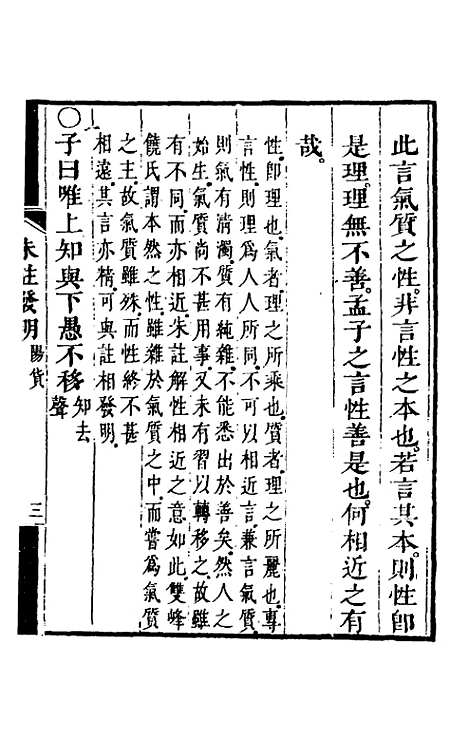 此言氣質之性。非言性之本也。若言其本。則性卽
是理。理無不善。孟子之言性善是也。何相近之有
哉。
性卽理也。氣者理之所乘也。質者理之所麗也。專
言性。則理爲人人所同。不可以相近言。兼言氣質。
則氣有淸濁。質有純雜。不能悉出於善矣。然人之
始生。氣質尚不甚用事。又未有習以轉移之。故雖
有不同。而亦相近。朱註解性相近之意如此。雙峰
饒氏謂本然之性。雖雜於氣質之中。而嘗爲氣質
之主。故氣質雖殊。而性終不甚
相遠。其言亦精。可與註相發明。
○子曰唯上知與下愚不移知去聲
朱註發明
陽貨
三